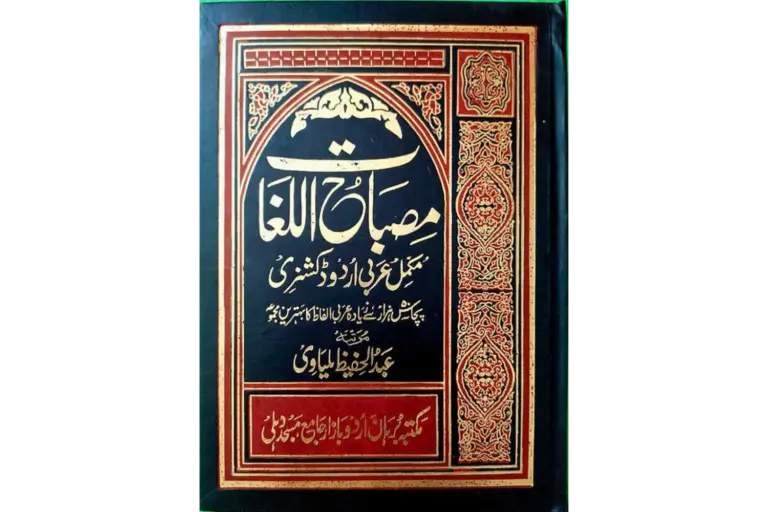 مصباح اللغات
مکمل عربی اردو ڈکشنری
پچاس ہزار سے زیادہ عربی الفاظ کا بہترین مجموعہ
مرتبہ
عبد الحفیظ بلیاوی
مکتبہ برہان اردو بازار جامع مسجد دہلی